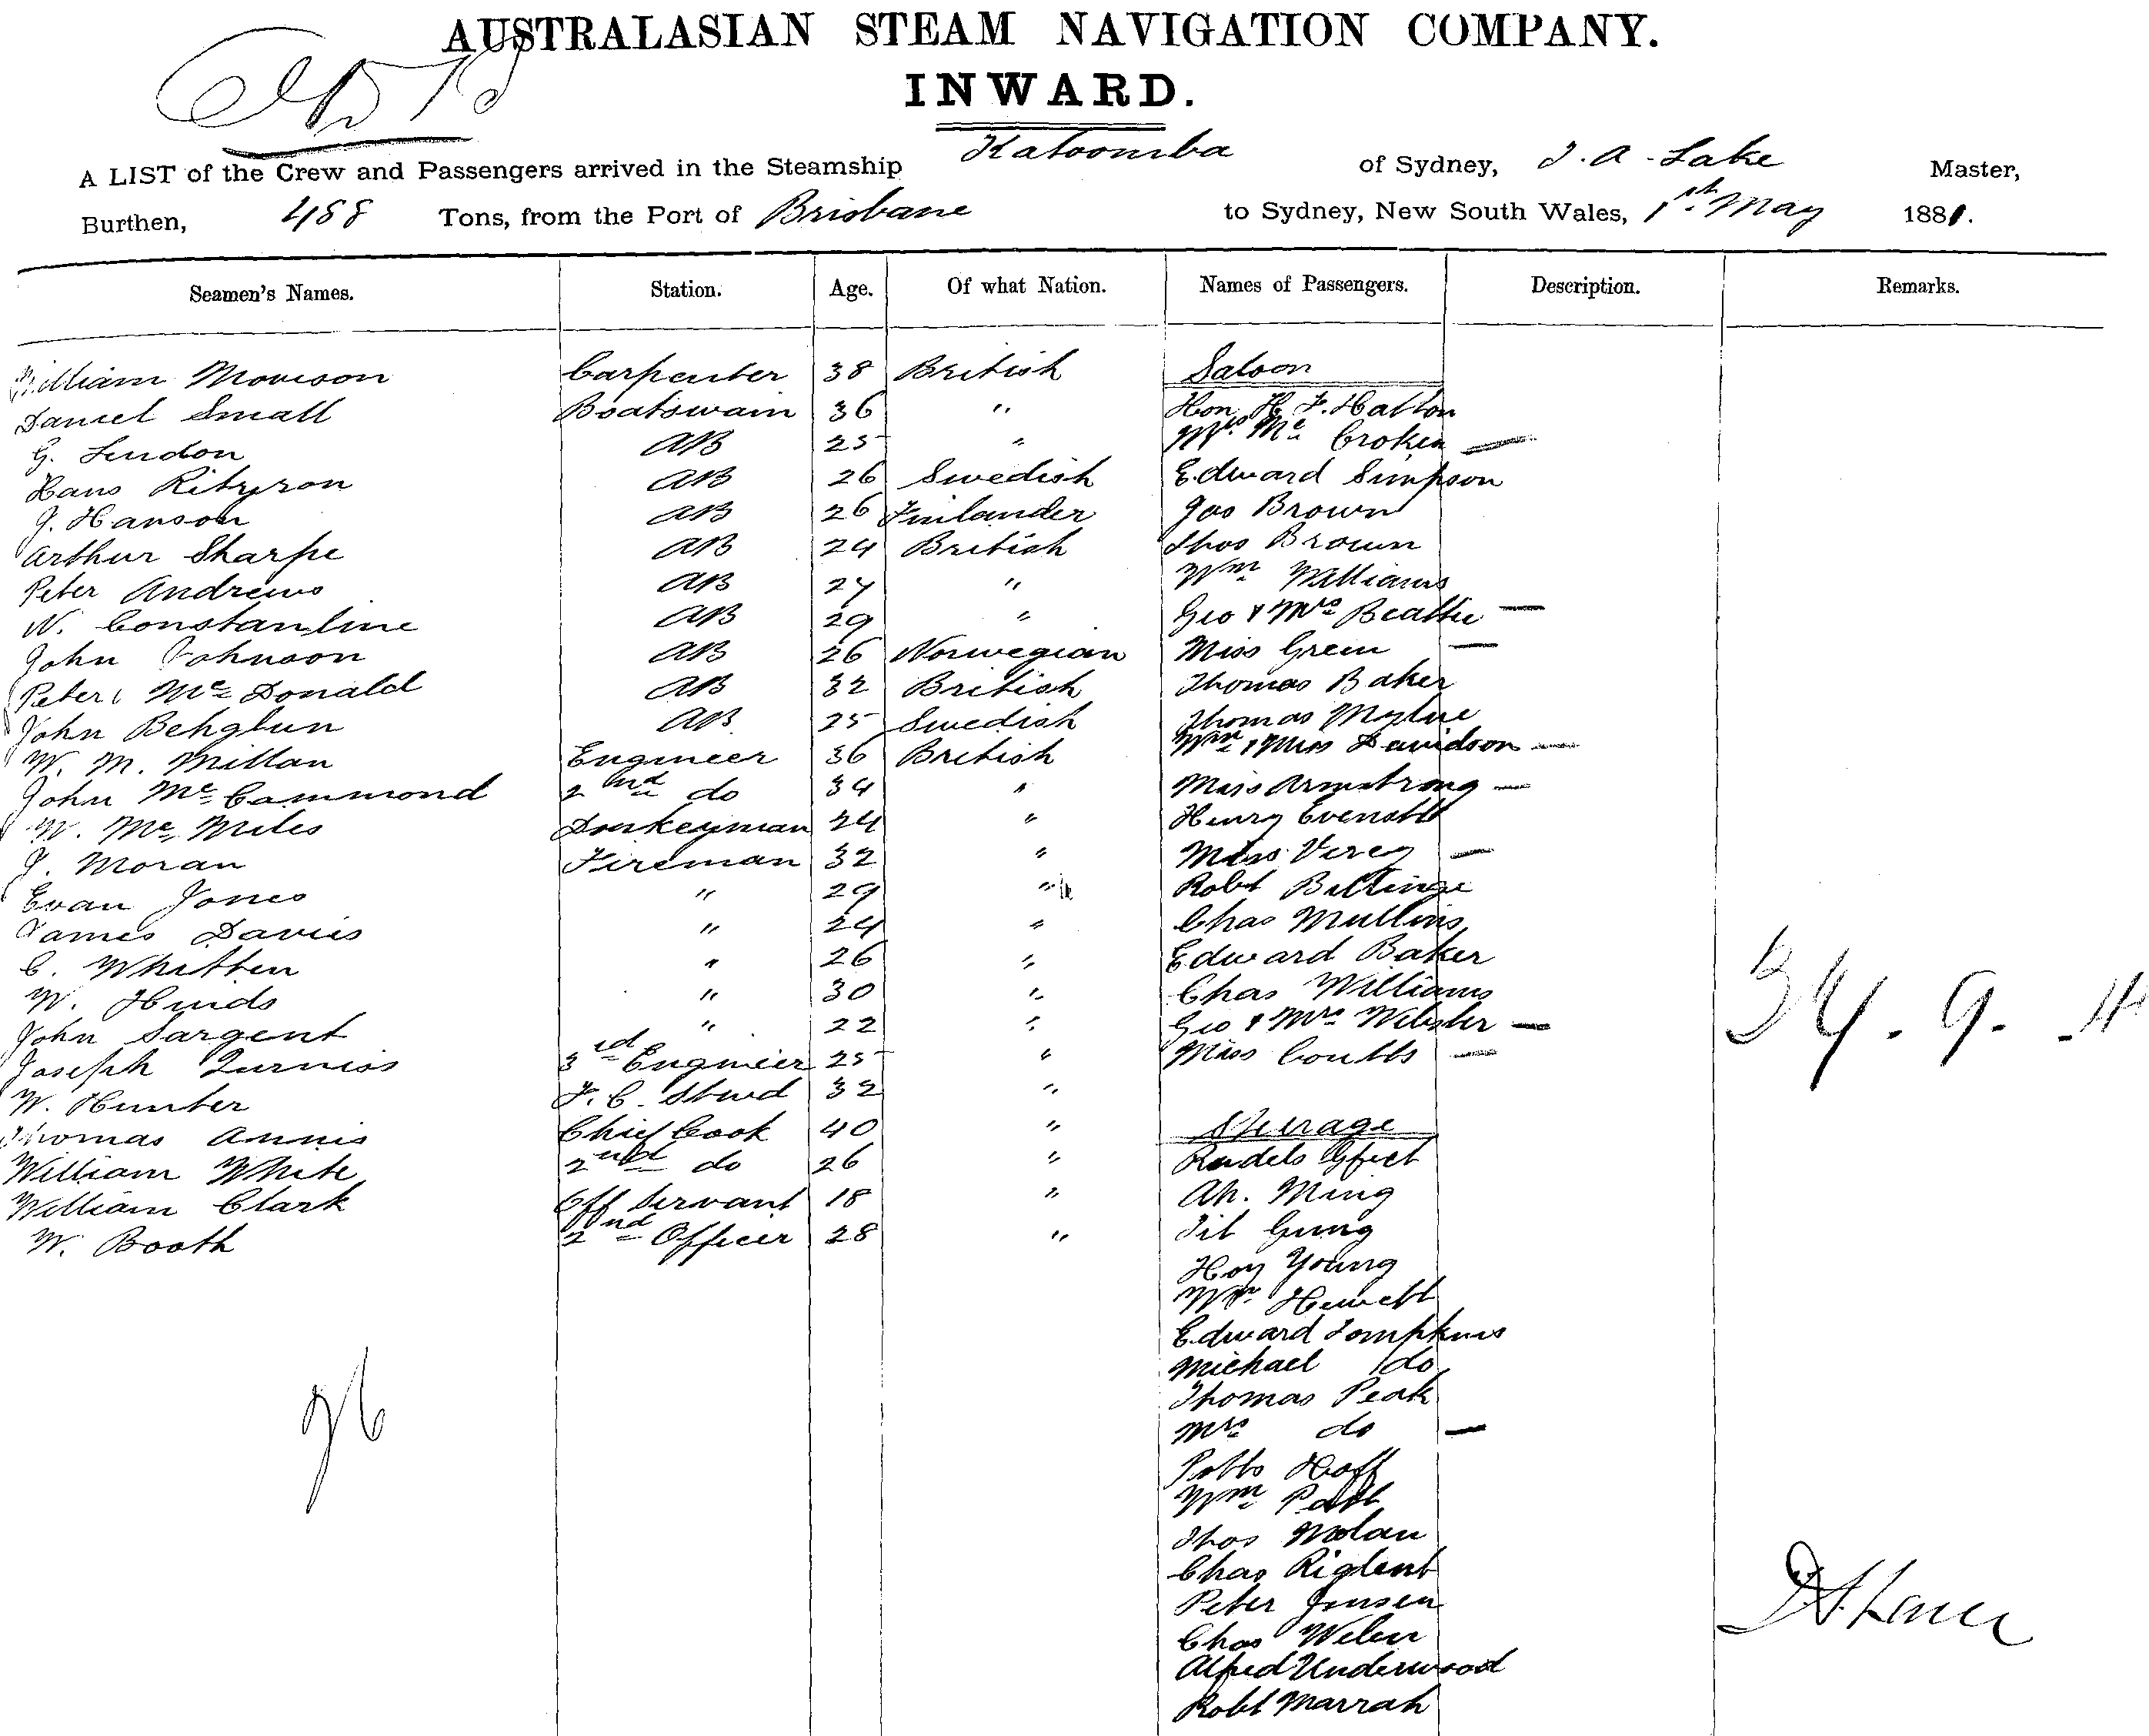 AUSTRALASIAN STEAM NAVIGATION COMPANY.
INWARD.
A LIST of the Crew and Passengers arrived in the Steamship Katoomba of Sydney, J. A. Lake Master,
Burthen, 488 Tons, from the Port of Brisbane to Sydney, New South Wales, 1st May 1881.
Seamen's Names. Station. Age. Of what Nation. Names of Passengers. Description. Remarks.
William Morrison Carpenter 38 British Saloon
Daniel Small Boatswain 36 " Hon H. F. Hatton
G. Lindon AB 25 " Mrs Mc Croken —
Hans AB 26 Swedish Edward Simpson
J. Hanson AB 26 Finlander Jas Brown
Arthur Sharpe AB 24 British Thos Brown
Peter Andrews AB 27 " Wm Williams
W. Constantine AB 29 " Geo & Mrs Beattie —
John Johnson AB 26 Norwegian Miss Green —
Peter Mc Donald AB 32 British Thomas Baker
John Behglun AB 25 Swedish Thomas Mylne
W. M. Millan Engineer 36 British Wm & Miss Davidson —
John Mc Cammond 2nd do 34 " Miss Armstrong —
W. Mc Miles Donkeyman 24 " Henry Evenett
J. Moran Fireman 32 " Miss Verey —
Evan Jones " 29 " Robt Ballinge
James Davies " 24 " Chas Mullins
C. Whitten " 26 " Edward Baker
W. Hinds " 30 " Chas Williams
John Sargent " 22 " Geo & Mrs Webster —
Joseph Turniss 3rd Engineer 25 " Miss Coutts —
W. Hunter F. C. Stwd 32 "
Thomas Annis Chief Cook 40 " Steerage
William White 2nd do 26 "
William Clark Off Servant 18 " Ah. Ming
W. Booth 2nd Officer 28 " Gung
Hoy Young
Wm Hewett
Edward Tompkins
Michael do
Thomas Peak
Mrs do —
Potts Hoff
Wm
Thos Nolan
Chas Riglent
Peter Jensen
Chas Weber
Alfred Underwood
Robt Marrah